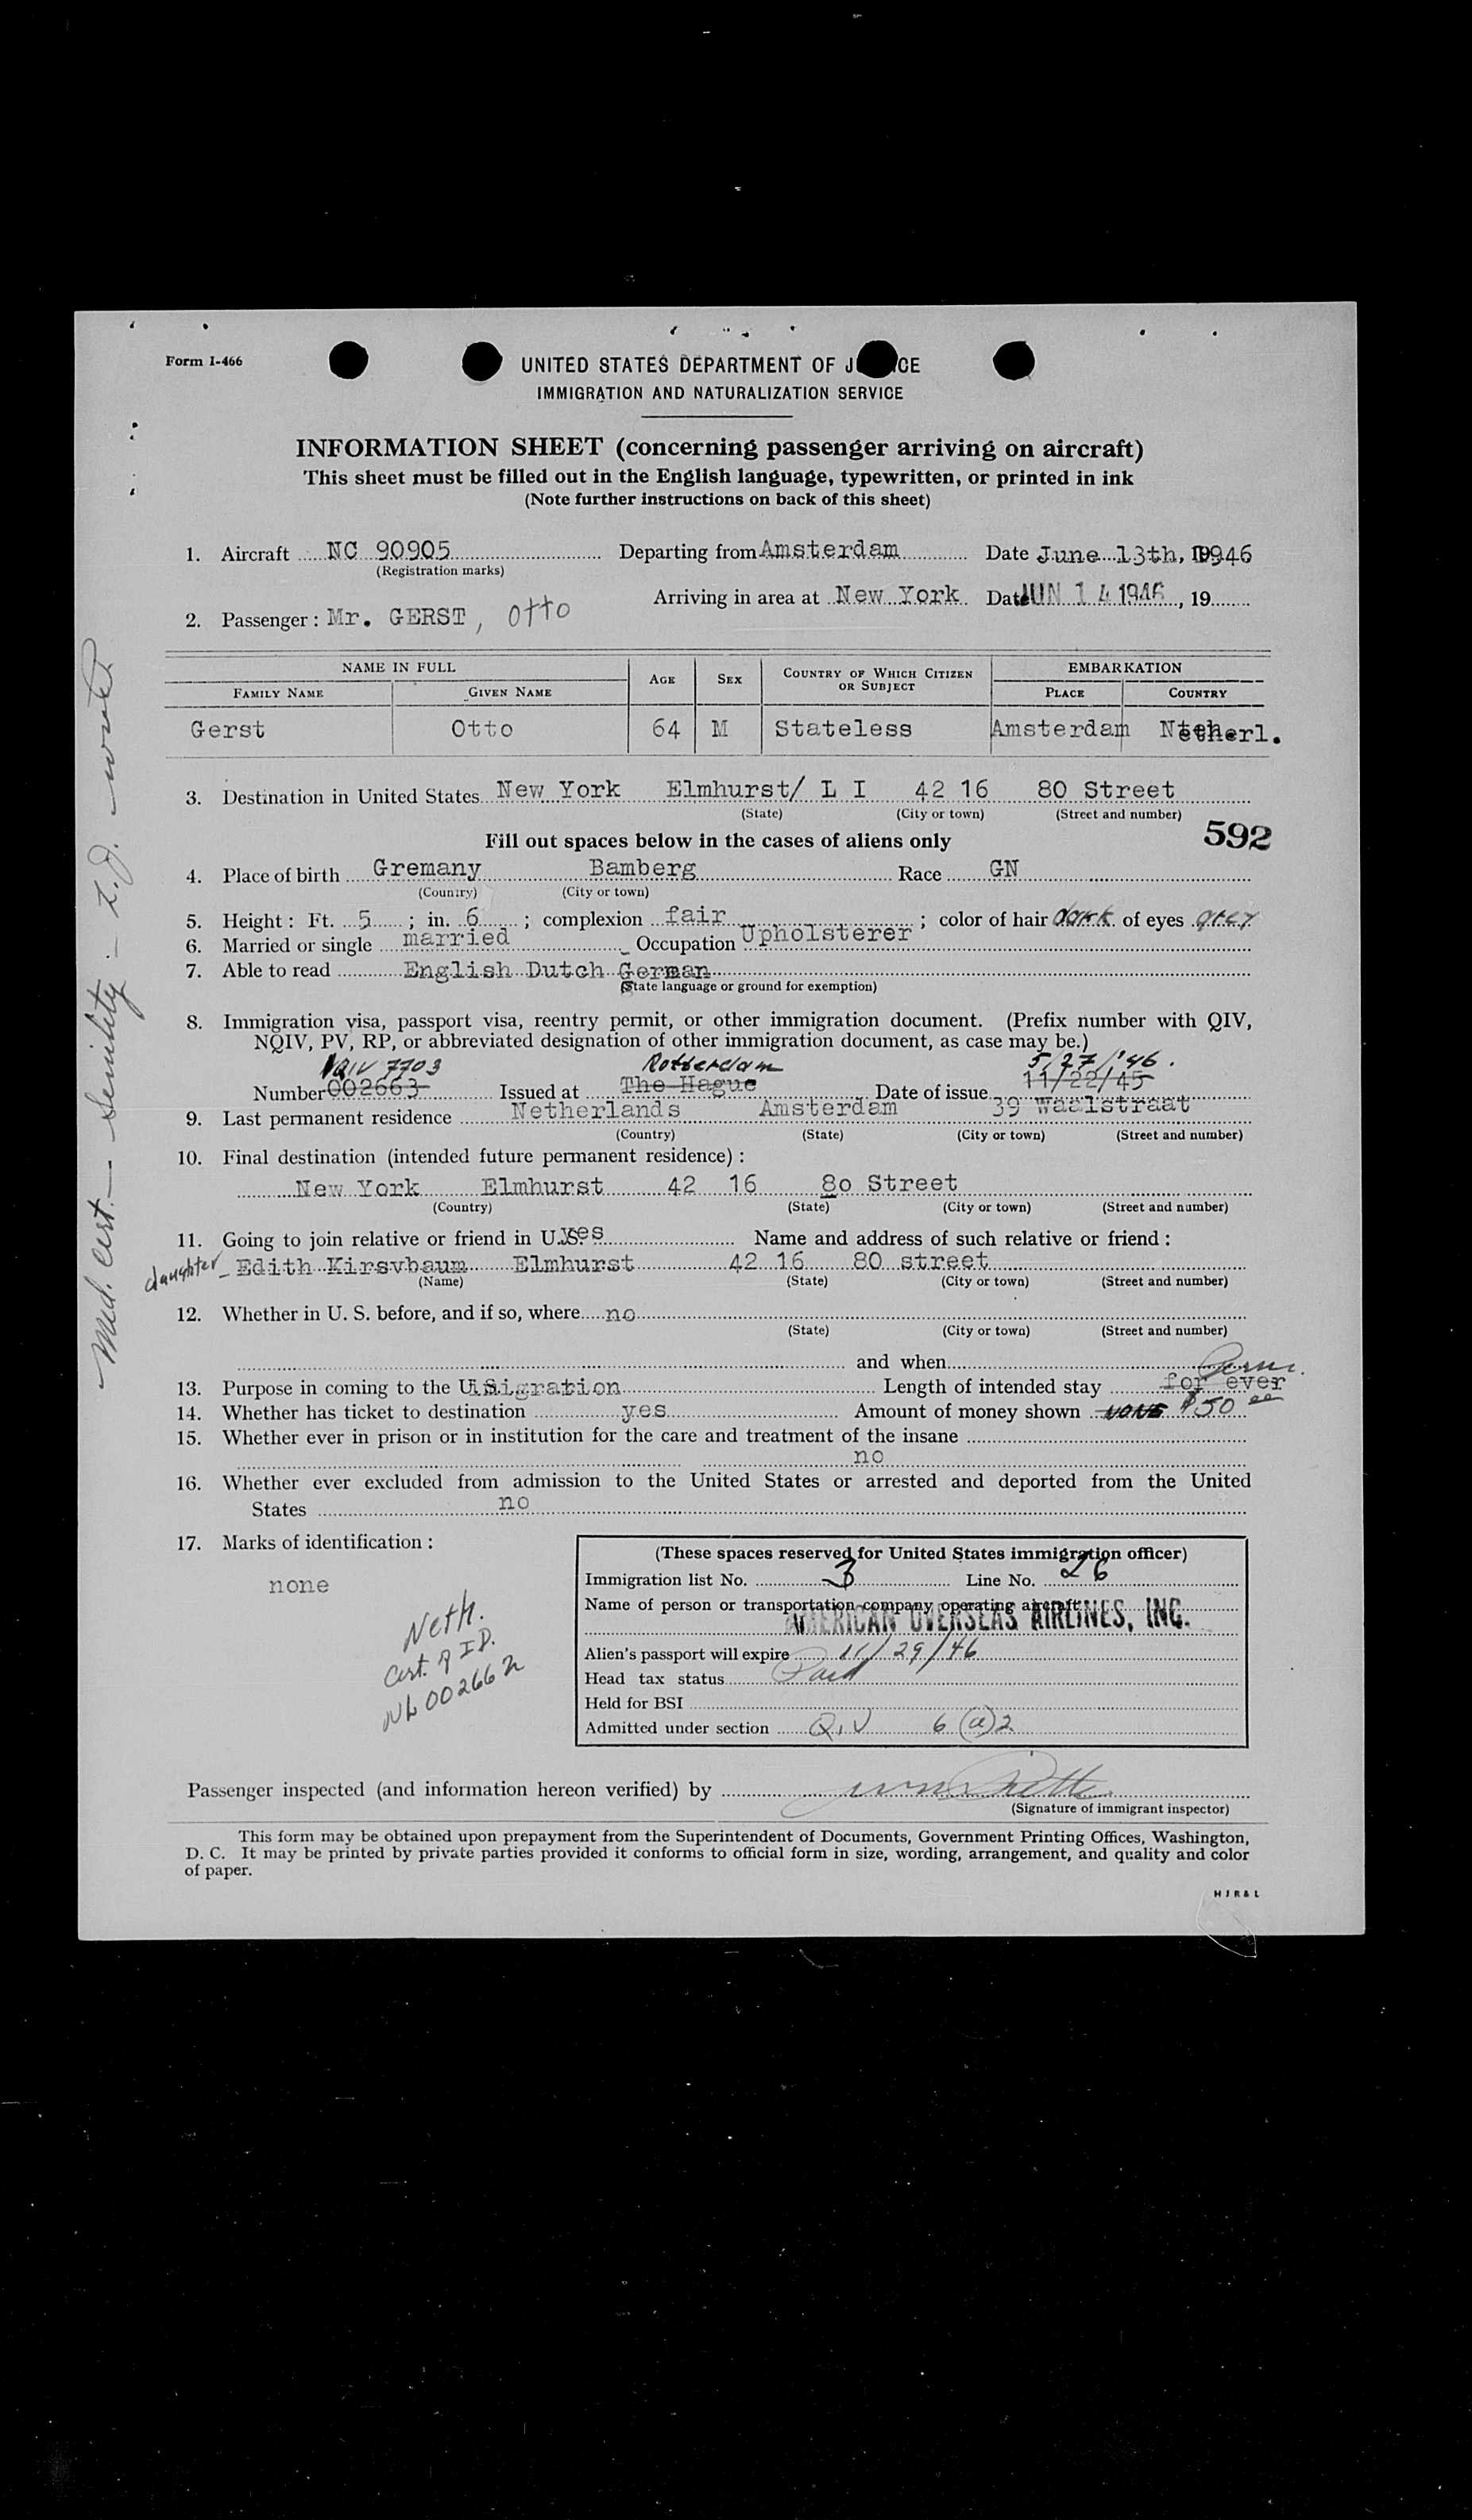 Form I-466
UNITED STATES DEPARTMENT OF J CE
IMMIGRATION AND NATURALIZATION SERVICE
INFORMATION SHEET (concerning passenger arriving on aircraft)
This sheet must be filled out in the English language, typewritten, or printed in ink
(Note further instructions on back of this sheet)
1. Aircraft NC 90905 Departing from Amsterdam Date June 13th, 1946
(Registration marks)
Arriving in area at New York Date JUN 14 1946, 19
2. Passenger: Mr. GERST, Otto
NAME IN FULL AGE SEX COUNTRY OF WHICH CITIZEN OR SUBJECT EMBARKATION
FAMILY NAME GIVEN NAME PLACE COUNTRY
Gerst Otto 64 M Stateless Amsterdam Netherl.
3. Destination in United States New York Elmhurst/ L I 42 16 80 Street
(State) (City or town) (Street and number)
Fill out spaces below in the cases of aliens only 592
4. Place of birth Gremany Bamberg Race GN
(Country) (City or town)
5. Height: Ft. 5; in. 6; complexion fair; color of hair dark of eyes grey
6. Married or single married Occupation Upholsterer
7. Able to read English Dutch German
(State language or ground for exemption)
8. Immigration visa, passport visa, reentry permit, or other immigration document. (Prefix number with QIV,
NQIV, PV, RP, or abbreviated designation of other immigration document, as case may be.)
QIV 7703 Rotterdam 5/27/'46.
Number 002663 Issued at The Hague Date of issue 11/22/45
9. Last permanent residence Netherlands Amsterdam 39 Waalstraat
(Country) (State) (City or town) (Street and number)
10. Final destination (intended future permanent residence):
New York Elmhurst 42 16 80 Street
(Country) (State) (City or town) (Street and number)
11. Going to join relative or friend in U.S. yes Name and address of such relative or friend:
daughter - Edith Kirsvbaum Elmhurst 42 16 80 street
(Name) (State) (City or town) (Street and number)
12. Whether in U. S. before, and if so, where no
(State) (City or town) (Street and number)
and when
Perm.
13. Purpose in coming to the U.S. imigration Length of intended stay for ever
14. Whether has ticket to destination yes Amount of money shown NONE $50 00
15. Whether ever in prison or in institution for the care and treatment of the insane
no
16. Whether ever excluded from admission to the United States or arrested and deported from the United
States no
17. Marks of identification:
none
Neth.
Cert. of I.D.
NL 002662
(These spaces reserved for United States immigration officer)
Immigration list No. 3 Line No. 26
Name of person or transportation company operating aircraft
AMERICAN OVERSEAS AIRLINES, INC.
Alien's passport will expire 11/29/46
Head tax status Paid
Held for BSI
Admitted under section Q.I.V 6 (a) 2
Passenger inspected (and information hereon verified) by
(Signature of immigrant inspector)
This form may be obtained upon prepayment from the Superintendent of Documents, Government Printing Offices, Washington,
D. C. It may be printed by private parties provided it conforms to official form in size, wording, arrangement, and quality and color
of paper.
H J R & L
Med. Cert. - Senility -